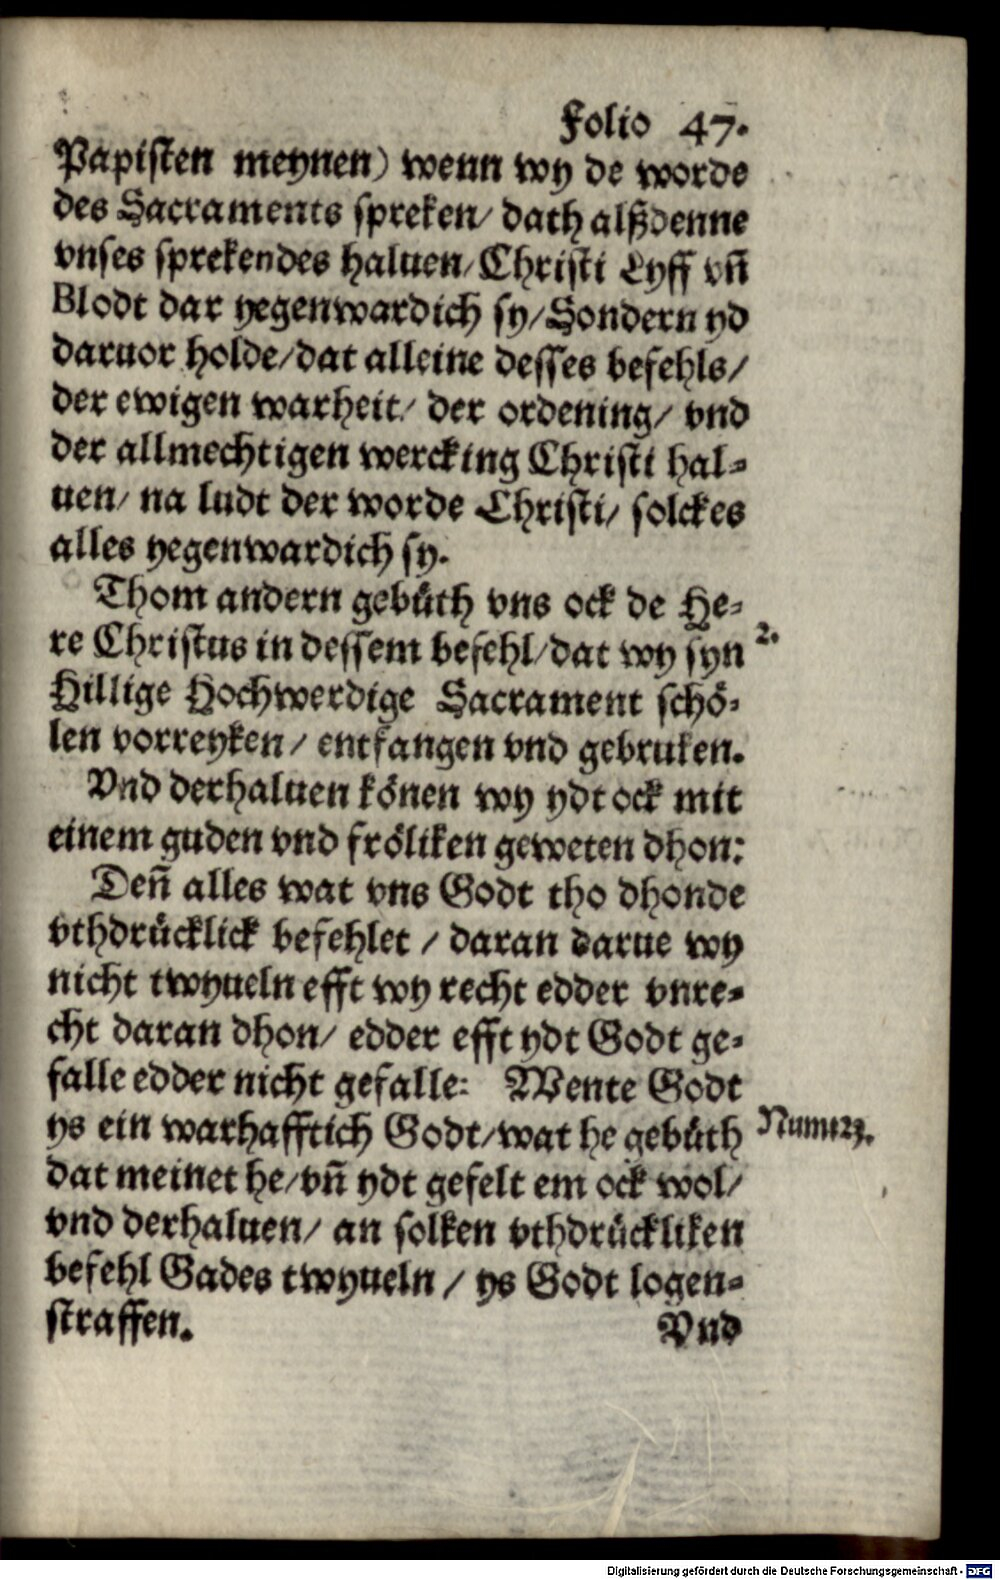 Folio 47.
Papisten meynen) wenn wy de worde
des Sacraments spreken/ dath alßdenne
vnses sprekendes haluen/ Christi Lyff vñ
Blodt dar yegenwardich sy/ Sondern yd
daruor holde/ dat alleine desses befehls/
der ewigen warheit/ der ordening/ vnd
der allmechtigen wercking Christi hal⸗
uen/ na ludt der worde Christi/ solckes
alles yegenwardich sy.
Thom andern gebüth vns ock de He⸗
re Christus in dessem befehl/ dat wy syn
2.
Hillige Hochwerdige Sacrament schö⸗
len vorreyken/ entfangen vnd gebruken.
Vnd derhaluen könen wy ydt ock mit
einem guden vnd fröliken geweten dhon:
Deñ alles wat vns Godt tho dhonde
vthdrücklick befehlet / daran darue wy
nicht twyueln efft wy recht edder vnre⸗
cht daran dhon/ edder efft ydt Godt ge⸗
falle edder nicht gefalle: Wente Godt
ys ein warhafftich Godt/ wat he gebüth
Num: 23.
dat meinet he/ vñ ydt gefelt em ock wol/
vnd derhaluen/ an solken vthdrückliken
befehl Gades twyueln / ys Godt logen⸗
straffen.
Vnd
Digitalisierung gefördert durch die Deutsche Forschungsgemeinschaft - DFG